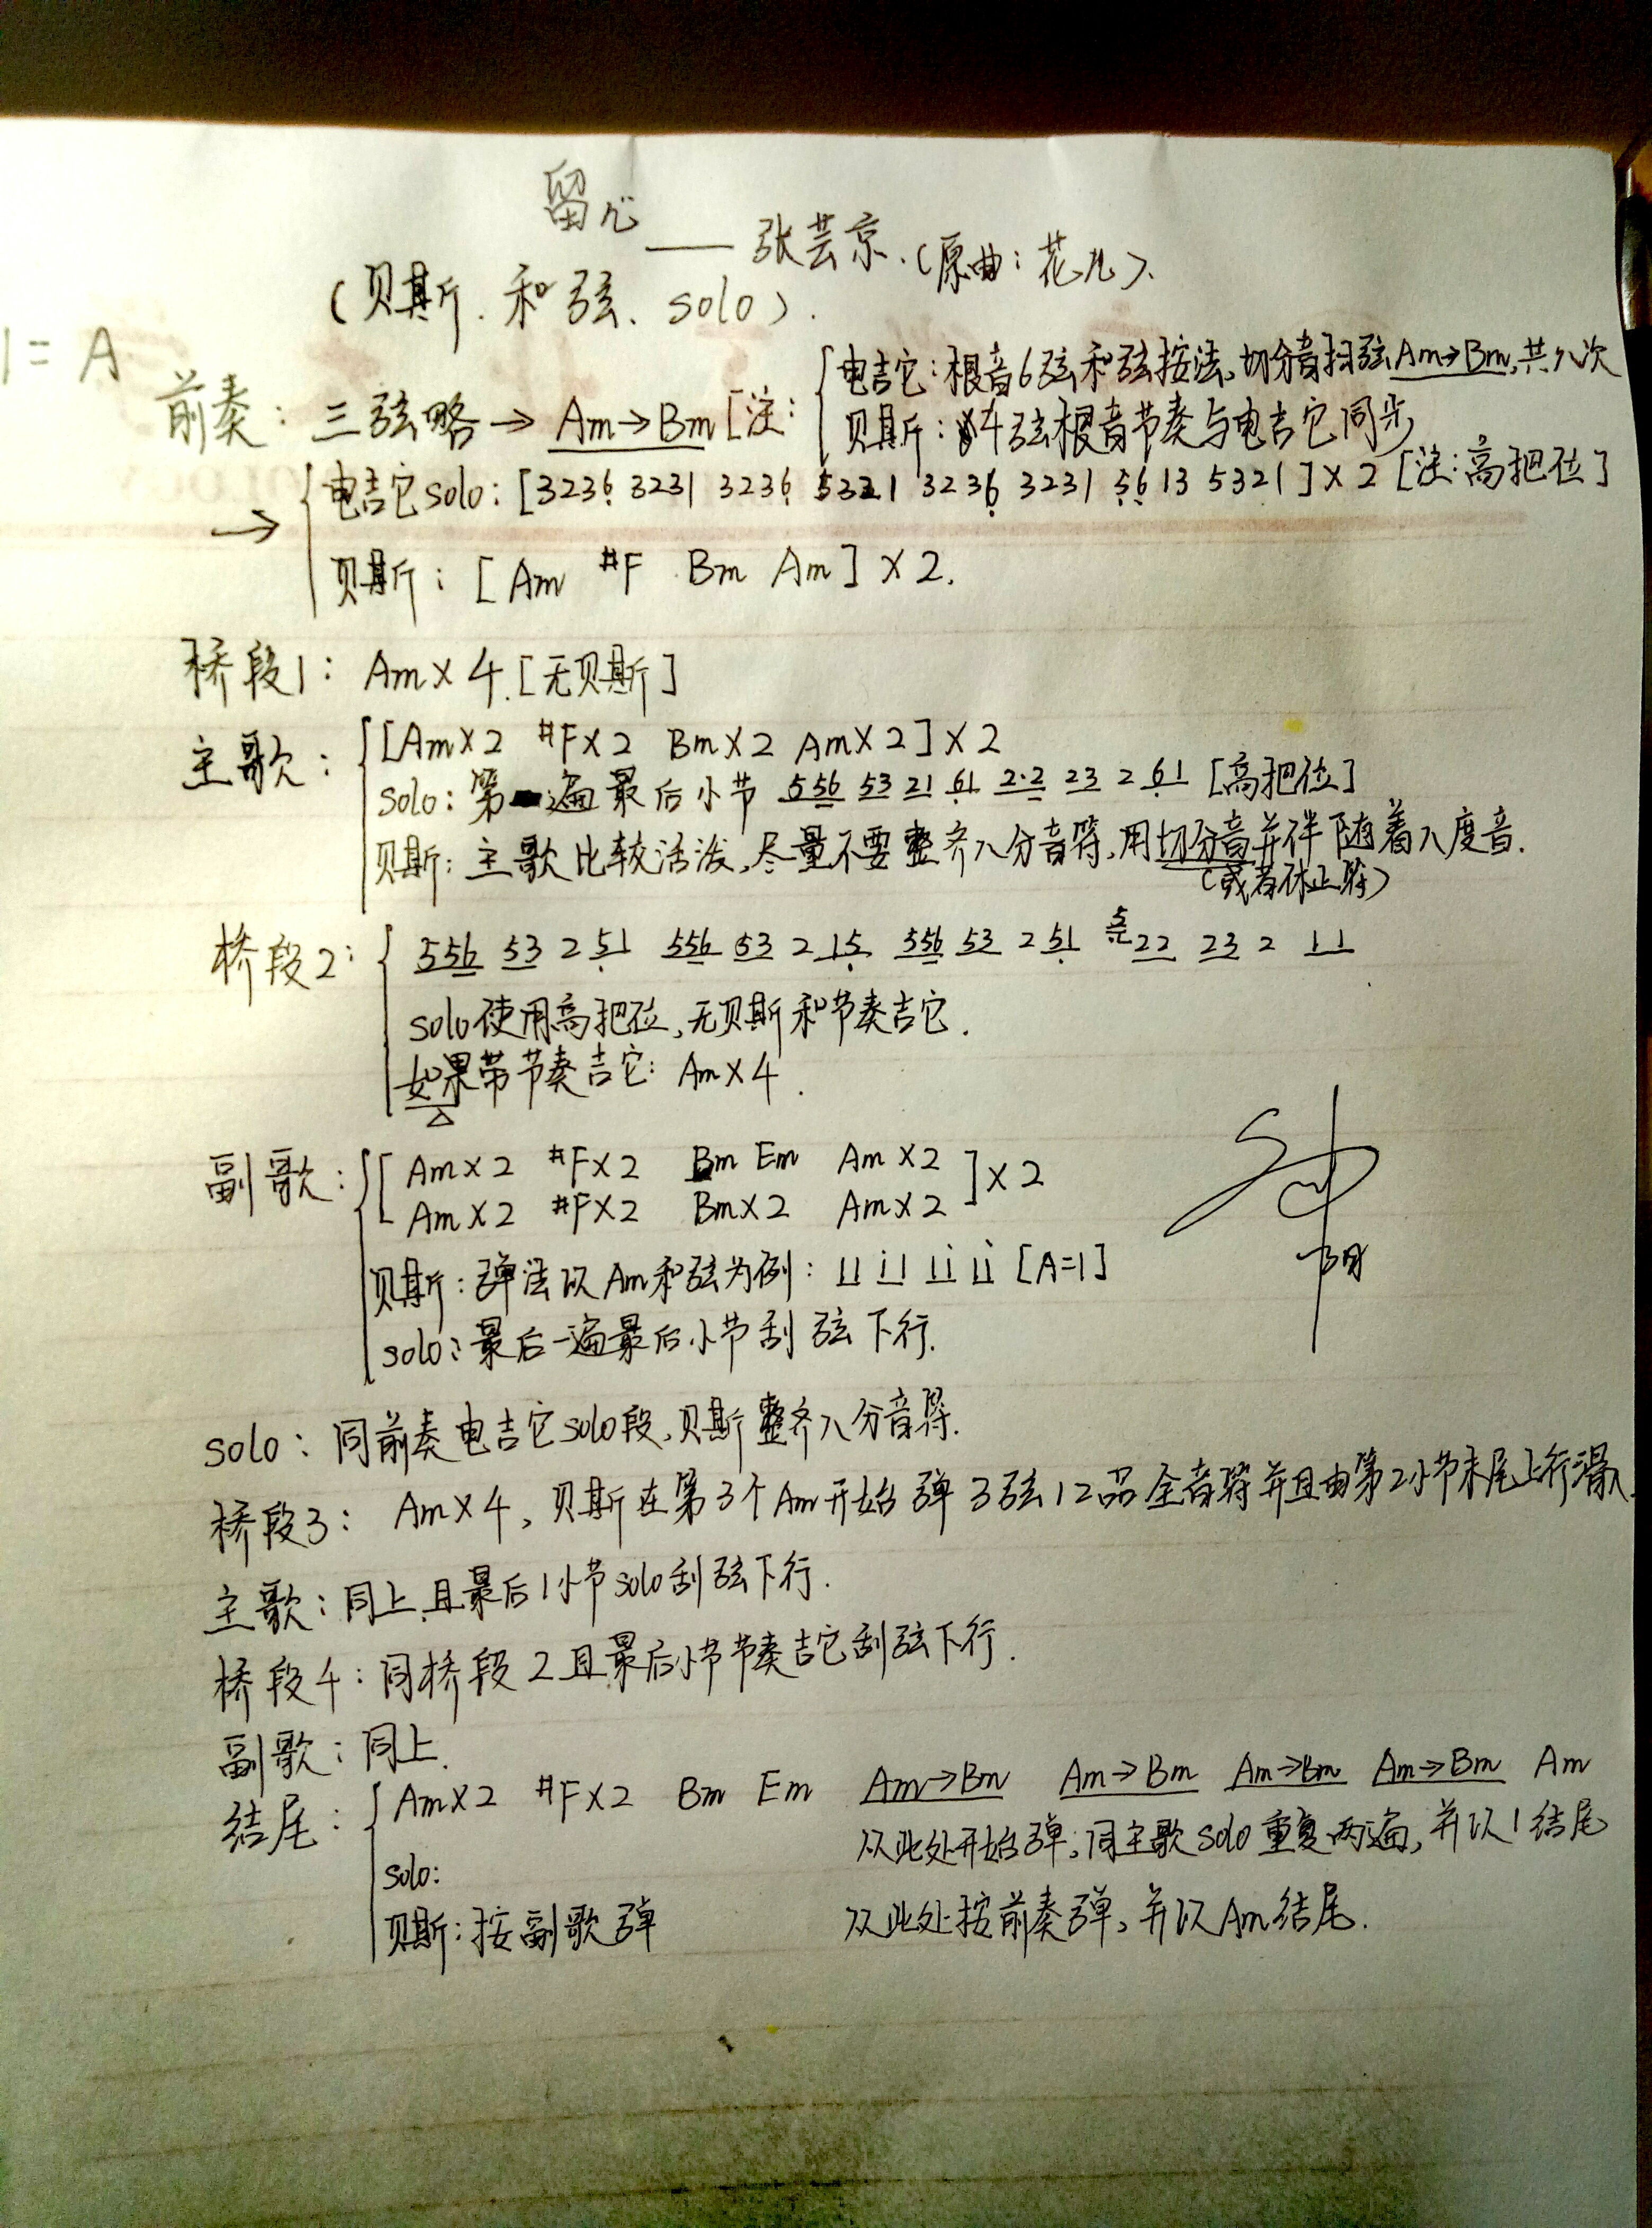 留心
—— 张芸京.(原曲:花儿).
(贝斯.和弦、solo).
1=A
前奏: 三弦略→ Am→Bm [注: 电吉它:根音6弦和弦按法,切分音扫弦Am→Bm,共八次
贝斯:4弦根音节奏与电吉它同步
→ 电吉它solo: [3236̣ 3231 3236̣ 5321 3236̣ 3231 5̣6̣13 5321]×2 [注:高把位]
贝斯: [Am #F Bm Am]×2.
桥段1: Am×4.[无贝斯]
主歌: [Am×2 #F×2 Bm×2 Am×2]×2
solo:第遍最后小节 556 53 21 6̣1 2·2 23 2 6̣1 [高把位]
贝斯:主歌比较活泼,尽量不要整齐八分音符,用切分音并伴随着八度音.
(或者休止符)
桥段2: 556 53 2 5̣1 556 53 2 15̣ 556 53 2 5̣1 22 23 2 11
solo使用高把位,无贝斯和节奏吉它.
如果带节奏吉它: Am×4.
副歌: [Am×2 #F×2 Bm Em Am×2
Am×2 #F×2 Bm×2 Am×2 ]×2
贝斯:弹法以Am和弦为例: 11 i1 1i 1i [A=1]
solo:最后一遍最后小节刮弦下行.
solo: 同前奏电吉它solo段,贝斯整齐八分音符.
桥段3: Am×4, 贝斯在第3个Am开始弹3弦12品全音符并且由第2小节末尾上行滑入.
主歌:同上,且最后1小节solo刮弦下行.
桥段4:同桥段2且最后小节节奏吉它刮弦下行.
副歌:同上.
结尾: Am×2 #F×2 Bm Em Am→Bm Am→Bm Am→Bm Am→Bm Am
solo: 从此处开始弹,同主歌solo重复两遍,并以1结尾
贝斯:按副歌弹 从此处按前奏弹,并以Am结尾.